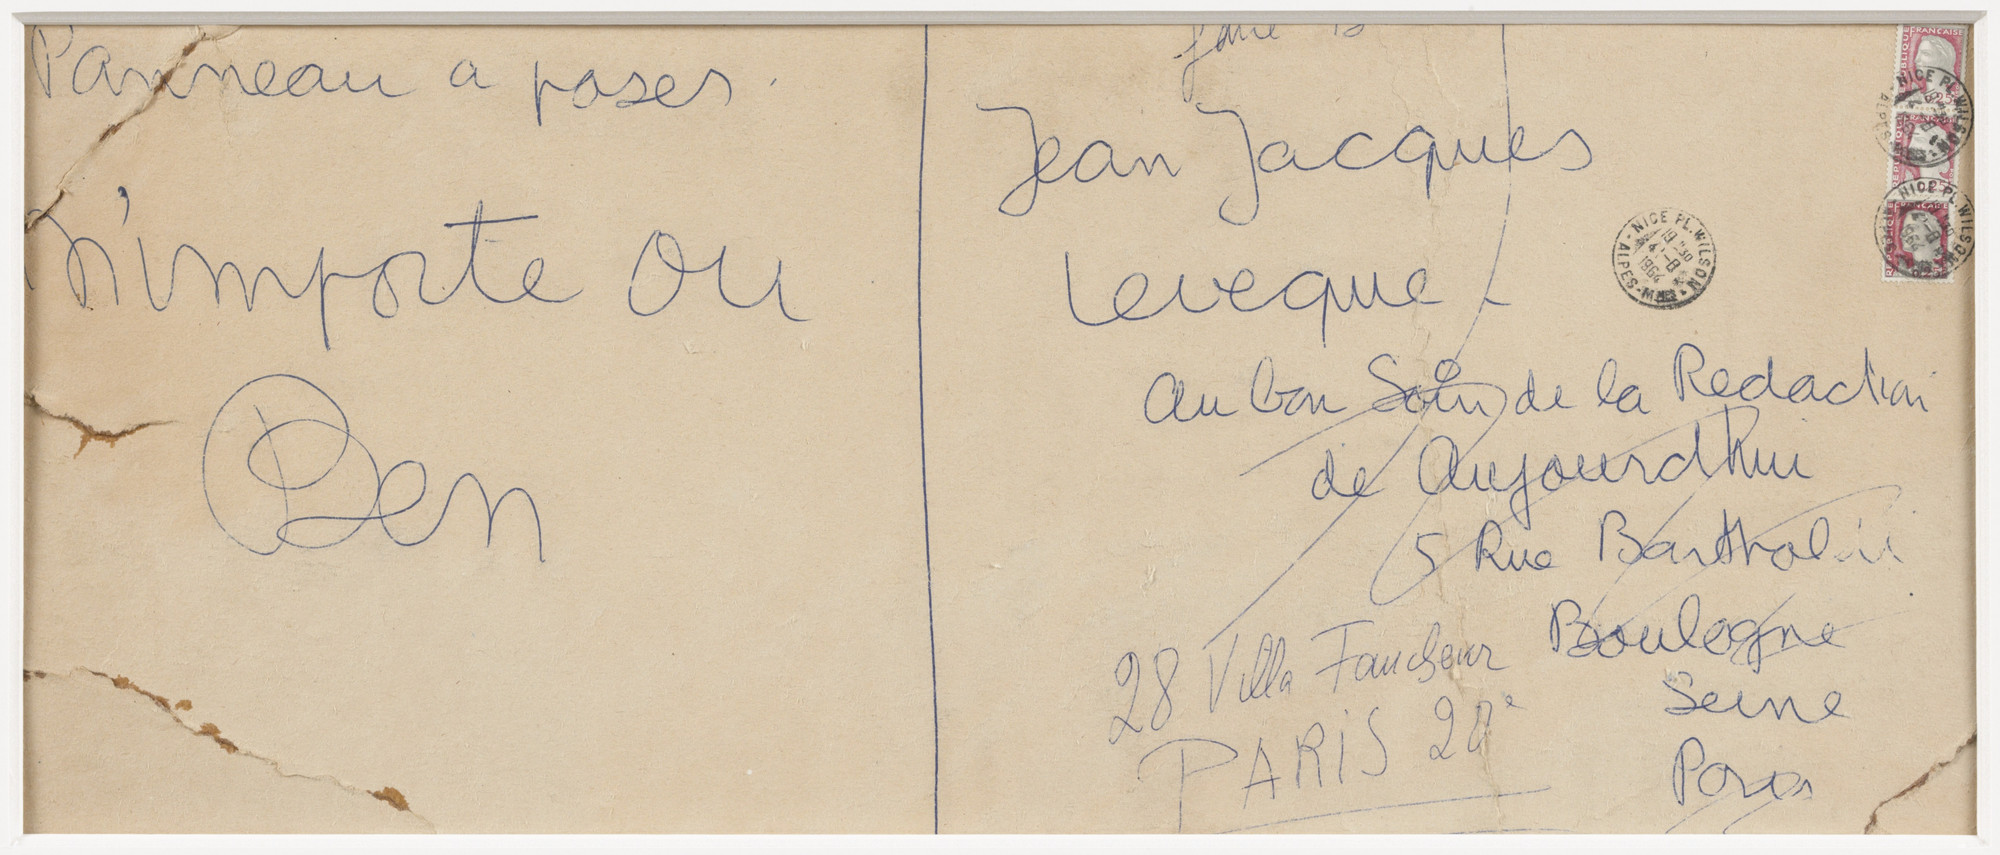 Panneau a poser.
N'importe ou
Ben
Jean Jacques
Leveque
au bon Soin de la Redaction
de Aujourdhui
5 Rue Bartholdi
Boulogne
Seine
Paris
28 Villa Faucheur
PARIS 20e
NICE PL. WILSON
19 30
4 - 8
1964
ALPES-MMES
REPUBLIQUE FRANÇAISE
NICE PL. WILSON
ALPES-MMES
NICE PL. WILSON